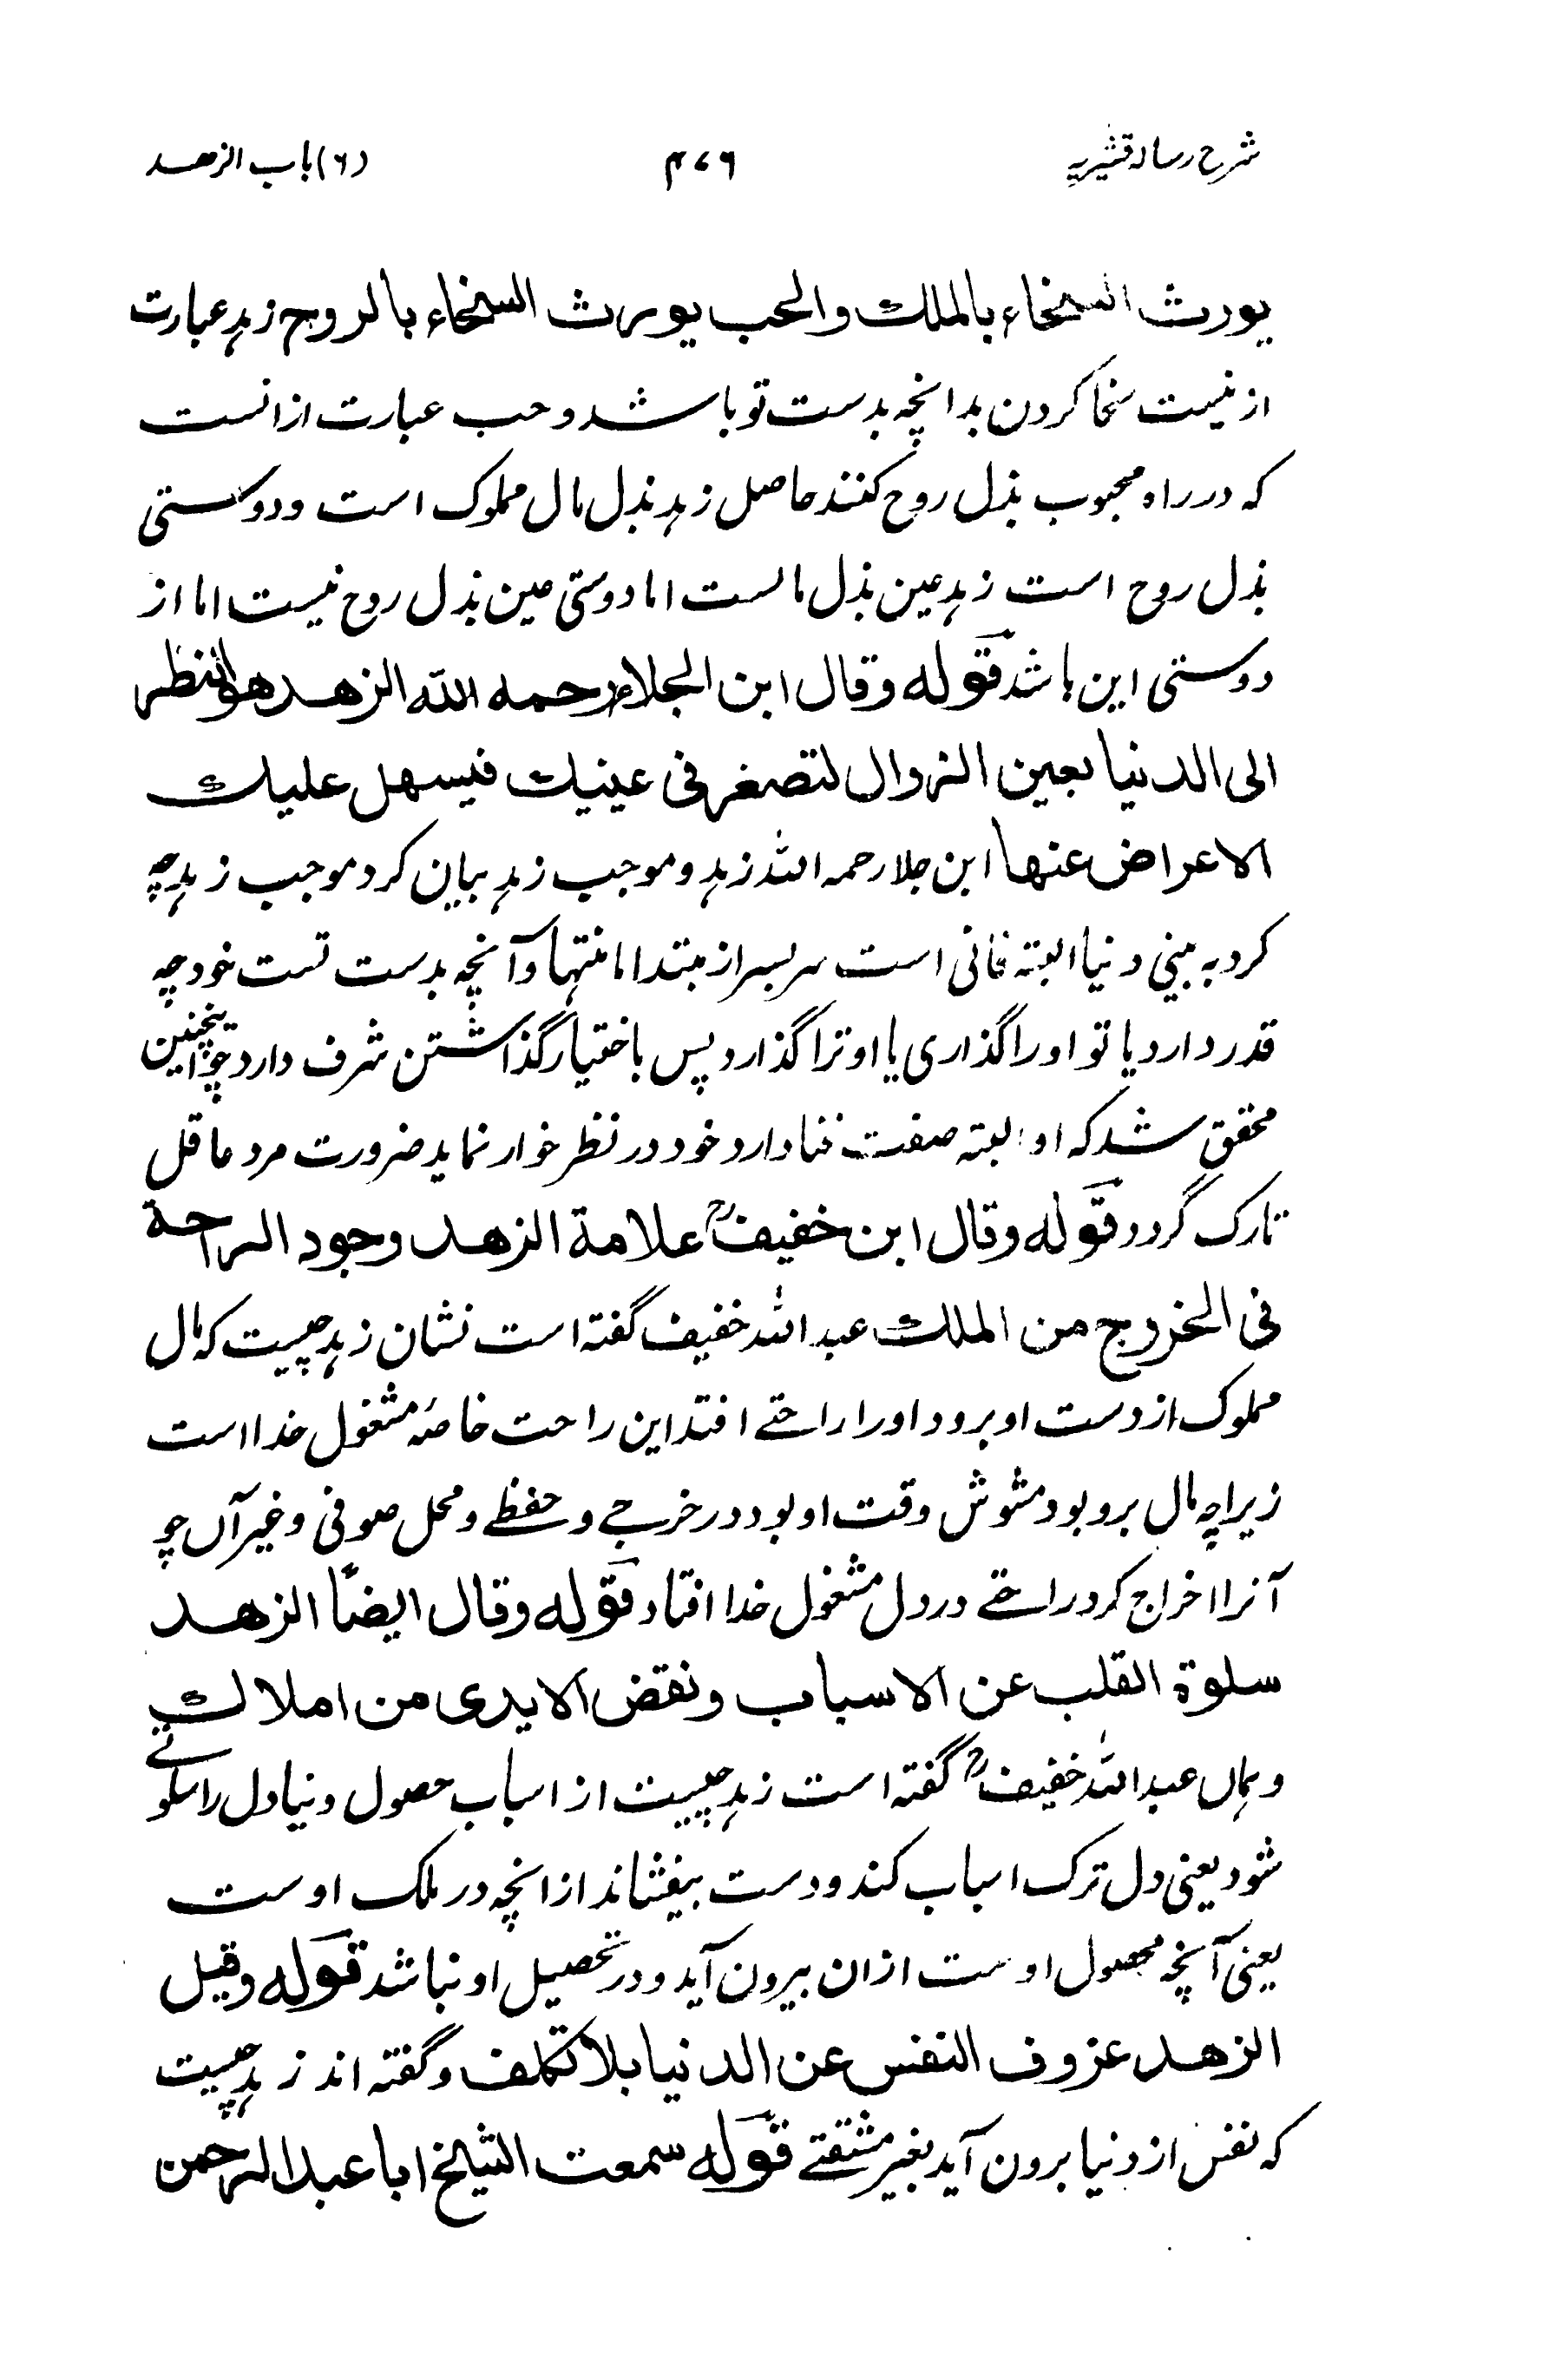 شرح رسالہ قشیریہ ۴۷۶ (۶) باب الزهد
یورث السخاء بالملك والحب یورث السخاء بالروح زہد عبارت
از نیست سخا کردن بدانچہ بدست تو باشد و حب عبارت از انست
کہ در راہ محبوب بذل روح کنند حاصل زہد بذل مال مملوک است و دوستی
بذل روح است زہد عین بذل مالست اما دوستی عین بذل روح نیست اما از
دوستی این باشد قوله وقال ابن الجلاء رحمه الله الزهد هو النظر
الی الدنیا بعین الزوال لتصغر فی عینیك فیسهل علیك
الاعراض عنها ابن جلا رحمہ اللہ زہد و موجب زہد بیان کرد موجب زہد چہ
کرد بہ بینی دنیا البتہ فانی است سربسر از مبتدا تا منتہا و آنچہ بدست تست خود چہ
قدر دارد یا تو او را گذاری یا او ترا گذارد پس باختیار گذاشتن شرف دارد چو اینچنین
محقق شد کہ او البتہ صفت فنا دارد خود در نظر خوار نماید ضرورت مرد عاقل
تارک گردد قوله وقال ابن خفیفؒ علامة الزهد وجود الراحة
فی الخروج من الملك عبد اللہ خفیف گفتہ است نشان زہد چیست کہ مال
مملوک از دست او برود او را راحتے افتد این راحت خاصہ مشغول خدا است
زیراچہ مال برو بود مشوش وقت او بود در خرجے و حفظے و محل صوفی و غیر آں چو
آنرا اخراج کرد راحتے در دل مشغول خدا افتاد قوله وقال ایضًا الزهد
سلوة القلب عن الاسباب ونفض الایدی من املاك
و ہماں عبد اللہ خفیفؒ گفتہ است زہد چیست از اسباب حصول دنیا دل را سلوتے
شود یعنی دل ترک اسباب کند و دست بیفشاند از انچہ در ملک اوست
یعنی آنچہ محصول اوست ازان بیرون آید و در تحصیل او نباشد قوله وقیل
الزهد عزوف النفس عن الدنیا بلا تکلف و گفتہ اند زہد چیست
کہ نفس از دنیا برون آید بغیر مشقتے قوله سمعت الشیخ ابا عبد الرحمن